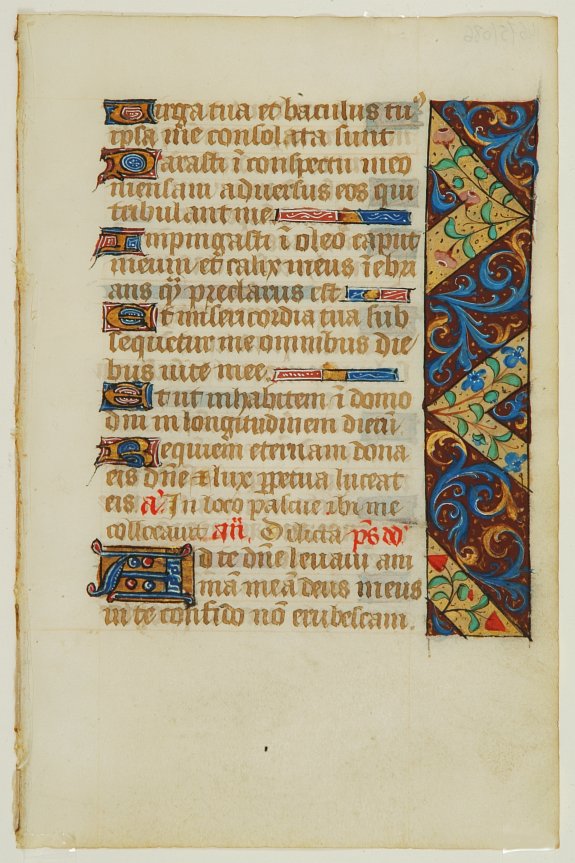 Virga tua et baculus tu⁹
ipsa me consolata sunt
Parasti ī conspectu meo
mensam adversus eos qui
tribulant me
Inpingasti ī oleo caput
meum et calix meus īebri
ans q̄ꝫ preclarus est
Et misericordia tua sub
sequetur me omnibus die
bus vite mee
Et ut inhabitem ī domo
dn̄i in longitudinem dierū
Requiem eternam dona
eis dn̄e ⁊ lux ꝑpetua luceat
eis a᷈. In loco pascue ibi me
collocavit an̄. Delicta p̄s dd̄
Ad te dn̄e levavi ani
mā meā deus meus
in te confido nō erubescam.